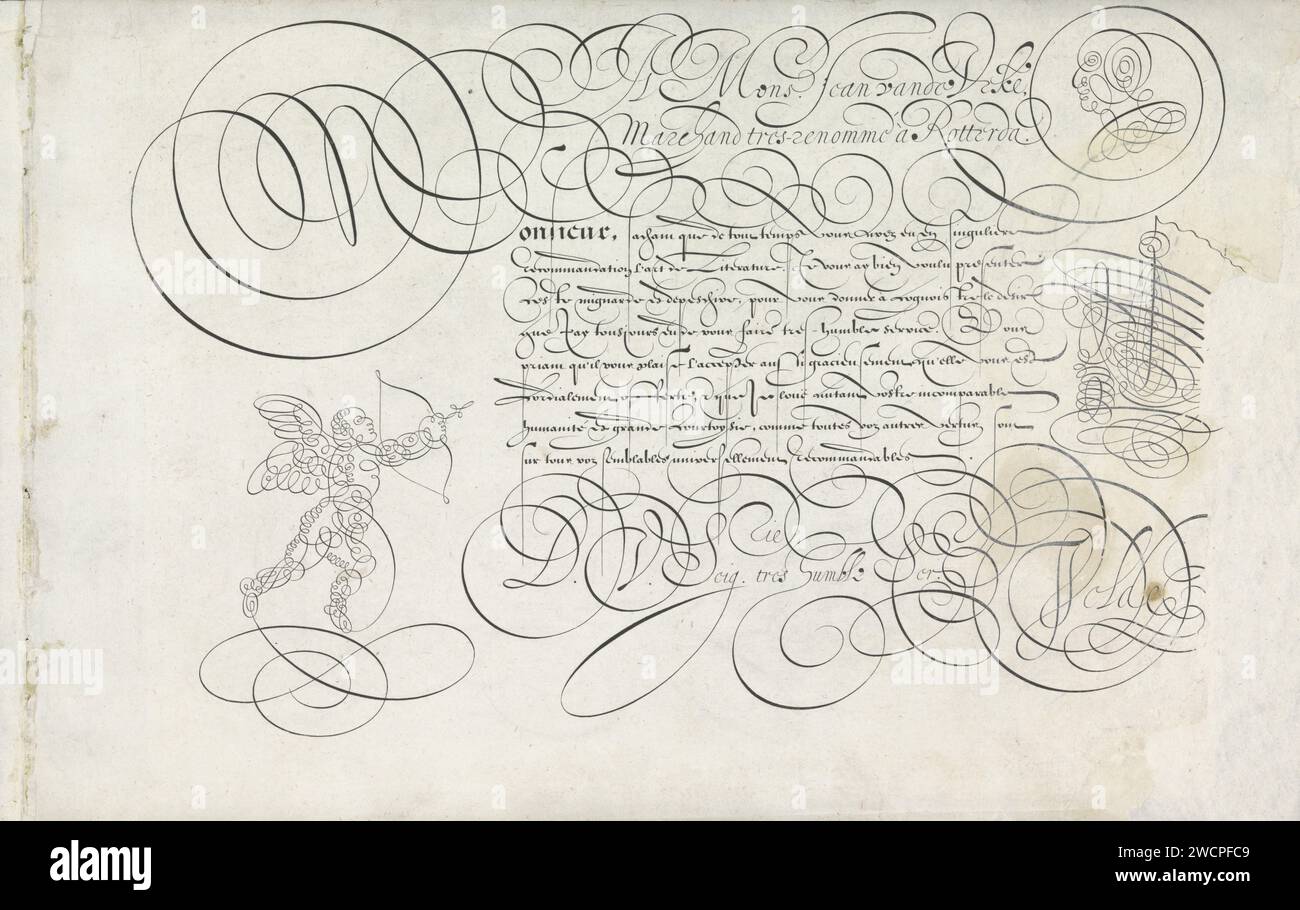 A Mons. Jean vande
Marchand tres-renommé à Rotterda.
Monsieur, sachant que de tout temps vous avez eu en singuliere
recommandation l'art de Literature, Je vous ay bien voulu presenter
ceste mignarde depesche, pour vous donner à cognoistre le desir
que j'ay tousjours eu de vous faire tres-humble service. Vous
priant qu'il vous plaise l'accepter aussi gracieusement qu'elle vous est
cordialement offerte, & que Je loue autant vostre incomparable
humanité & grande courtoysie, comme toutes voz autres vertus sont
sur tous voz semblables universellement recommandables.
D. V. Seig. tres humble Ser.
Velde
alamy
a
alamy
Image ID: 2WCPFC9
www.alamy.com